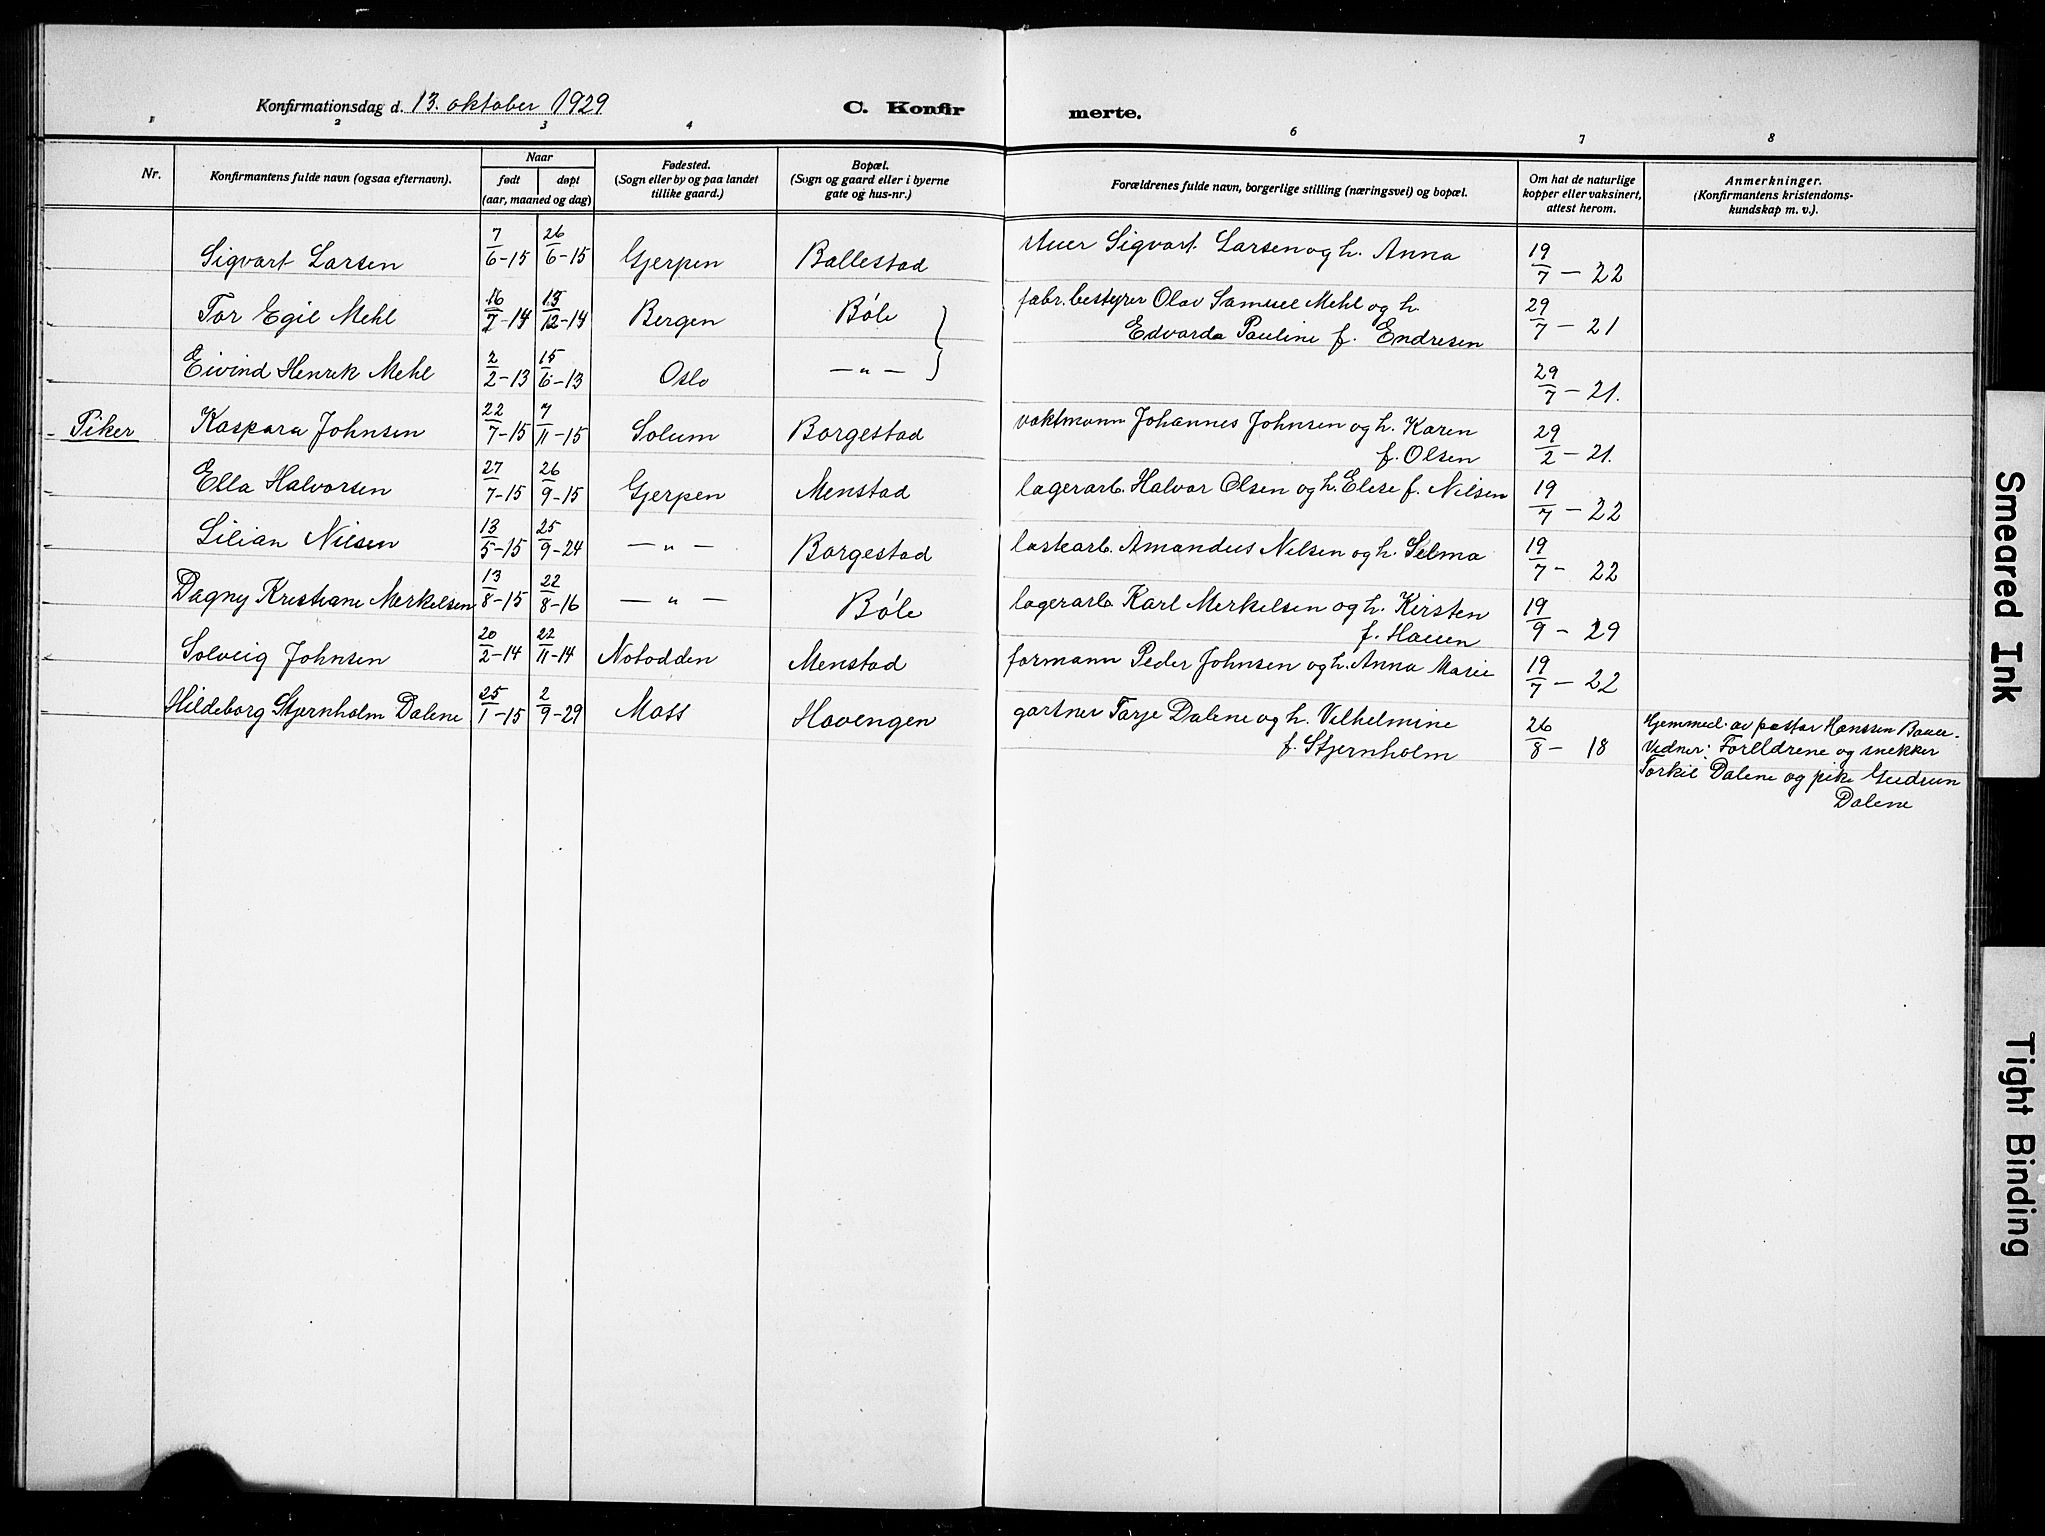 Konfirmationsdag d. 13. oktober 1929
C. Konfir merte.
1 2 3 4 5 6 7 8
Nr.
Konfirmantens fulde navn (ogsaa efternavn).
Naar
født døpt
(aar, maaned og dag)
Fødested.
(Sogn eller by og paa landet
tillike gaard.)
Bopæl.
(Sogn og gaard eller i byerne
gate og hus-nr.)
Forældrenes fulde navn, borgerlige stilling (næringsvei) og bopæl.
Om hat de naturlige
kopper eller vaksinert,
attest herom.
Anmerkninger.
(Konfirmantens kristendoms-
kundskap m. v.).
Sigvart Larsen 7/6-15 26/6-15 Gjerpen Ballestad stuer Sigvart Larsen og h. Anna 19/7 - 22
Tor Egil Mehl 16/7-14 13/12-14 Bergen Bøle fabr. bestyrer Olav Samuel Mehl og h. 29/7 - 21
Edvarda Pauline f. Endresen
Eivind Henrik Mehl 2/2-13 15/6-13 Oslo - " - 29/7 - 21.
Piker Kaspara Johnsen 22/7-15 7/11-15 Solum Borgestad vaktmann Johannes Johnsen og h. Karen 29/2 - 21.
f. Olsen
Ella Halvorsen 27/7-15 26/9-15 Gjerpen Menstad lagerarb. Halvor Olsen og h. Elise f. Nilsen 19/7 - 22
Lilian Nilsen 13/5-15 25/9-24 - " - Borgestad lastearb. Amandus Nilsen og h. Selma 19/7 - 22
Dagny Kristiane Merkelsen 13/8-15 22/8-16 - " - Bøle lagerarb. Karl Merkelsen og h. Kirsten 19/9 - 29
f. Hauen
Solveig Johnsen 20/2-14 22/11-14 Notodden Menstad formann Peder Johnsen og h. Anna Marie 19/7 - 22
Hildeborg Stjernholm Dalene 25/1-15 2/9-29 Moss Hovengen gartner Tarje Dalene og h. Vilhelmine 26/8 - 18
f. Stjernholm
Hjemmed. av pastor Hanssen Bauer.
Vidner: Foreldrene og snekker
Torkil Dalene og pike Gudrun
Dalene
Smeared Ink
Tight Binding